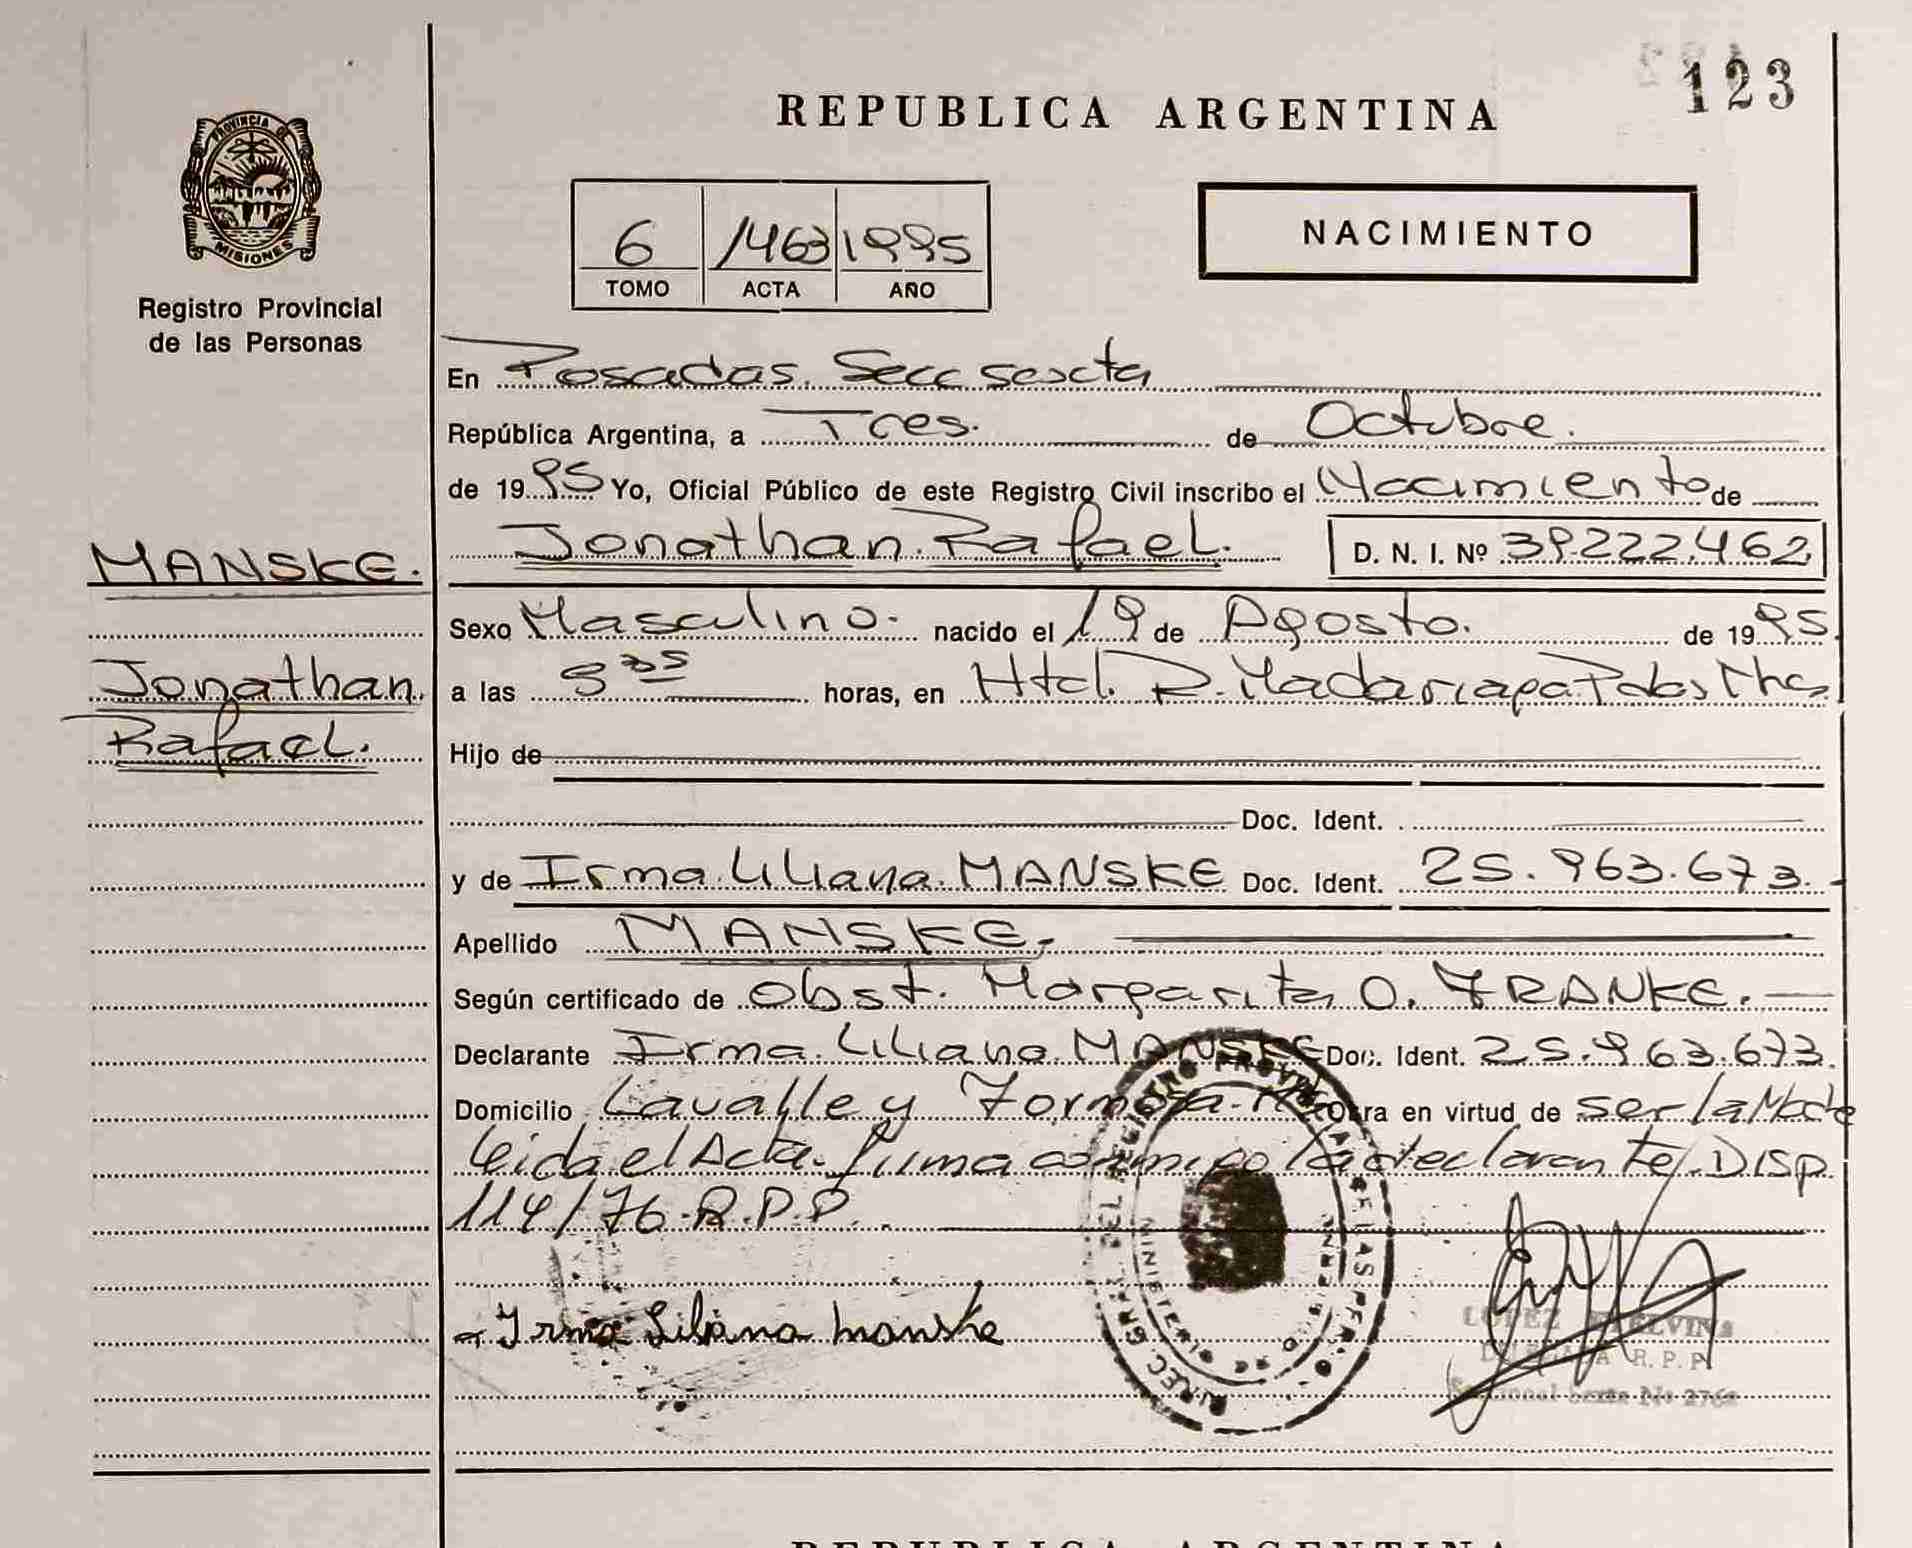 123
REPUBLICA ARGENTINA
PROVINCIA DE
MISIONES
Registro Provincial
de las Personas
6 1463 1995
TOMO ACTA AÑO
NACIMIENTO
En Posadas. Secc sexta
República Argentina, a Tres. de Octubre.
de 1995 Yo, Oficial Público de este Registro Civil inscribo el Nacimiento de
MANSKE.
Jonathan Rafael. D. N. I. Nº 39.222.462
Sexo Masculino. nacido el 19 de Agosto. de 1995
Jonathan
a las horas, en Htal. R. Madariaga Pdas Mnes
Rafael.
Hijo de
Doc. Ident.
y de Irma Liliana MANSKE Doc. Ident. 25.963.673.
Apellido MANSKE.
Según certificado de obst. Margarita O. FRANKE.
Declarante Irma Liliana MANSKE Doc. Ident. 25.963.673.
Domicilio Lavalle y Formosa. Obra en virtud de ser la Madre
Leida el Acta. firma conmigo la declarante. Disp.
114/76-R.P.P.
Irma Liliana Manske
LOPEZ ELVIRA
DELEGADA R. P. P
Seccional Sexta Nº 276
DIREC. GRAL. DEL REGISTRO PROVINCIAL DE LAS PERS.
MINISTERIO DE GOBIERNO
REPUBLICA ARGENTINA